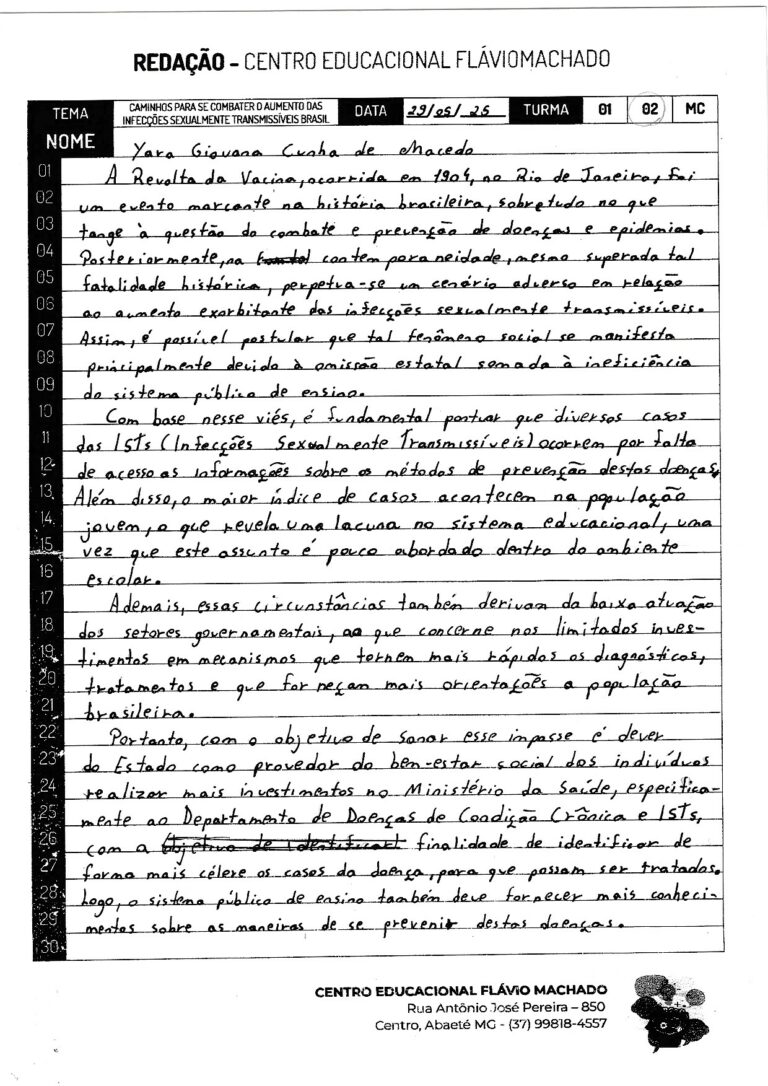 REDAÇÃO - CENTRO EDUCACIONAL FLÁVIOMACHADO
TEMA CAMINHOS PARA SE COMBATER O AUMENTO DAS INFECÇÕES SEXUALMENTE TRANSMISSÍVEIS BRASIL DATA 29/05/25 TURMA 01 02 MC
NOME Yara Giovana Cunha de Macedo
01 A Revolta da Vacina, ocorrida em 1904, no Rio de Janeiro, foi
02 um evento marcante na história brasileira, sobretudo no que
03 tange à questão do combate e prevenção de doenças e epidemias.
04 Posteriormente, na contemporaneidade, mesmo superada tal
05 fatalidade histórica, perpetua-se um cenário adverso em relação
06 ao aumento exorbitante das infecções sexualmente transmissíveis.
07 Assim, é possível postular que tal fenômeno social se manifesta
08 principalmente devido à omissão estatal somada à ineficiência
09 do sistema público de ensino.
10 Com base nesse viés, é fundamental pontuar que diversos casos
11 das ISTs (Infecções Sexualmente Transmissíveis) ocorrem por falta
12 de acesso as informações sobre os métodos de prevenção destas doenças.
13 Além disso, o maior índice de casos acontecem na população
14 jovem, o que revela uma lacuna no sistema educacional, uma
15 vez que este assunto é pouco abordado dentro do ambiente
16 escolar.
17 Ademais, essas circunstâncias também derivam da baixa atuação
18 dos setores governamentais, ao que concerne nos limitados inves-
19 timentos em mecanismos que tornem mais rápidos os diagnósticos,
20 tratamentos e que forneçam mais orientações a população
21 brasileira.
22 Portanto, com o objetivo de sanar esse impasse é dever
23 do Estado como provedor do ben-estar social dos indivíduos
24 realizar mais investimentos no Ministério da Saúde, especifica-
25 mente ao Departamento de Doenças de Condição Crônica e ISTs,
26 com a objetivo de identificar finalidade de identificar de
27 forma mais célere os casos da doença, para que possam ser tratados.
28 Logo, o sistema público de ensino também deve fornecer mais conheci-
29 mentos sobre as maneiras de se prevenir destas doenças.
30
CENTRO EDUCACIONAL FLÁVIO MACHADO
Rua Antônio José Pereira – 850
Centro, Abaeté MG - (37) 99818-4557